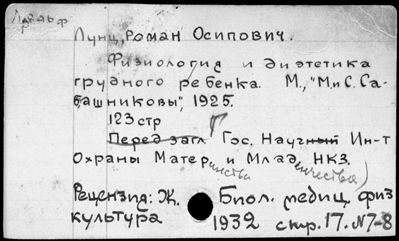 Лунц, Роман Осипович.
Физиология и диэтетика
грудного ребенка. М., "М и С. Са-
башниковы", 1925.
123 стр
Перед загл Гос. Научный Ин-т
Охраны Материнства и Младенчества НКЗ.
Рецензия: Ж. Биол. медиц. физ
культура 1932 стр. 17. N7-8